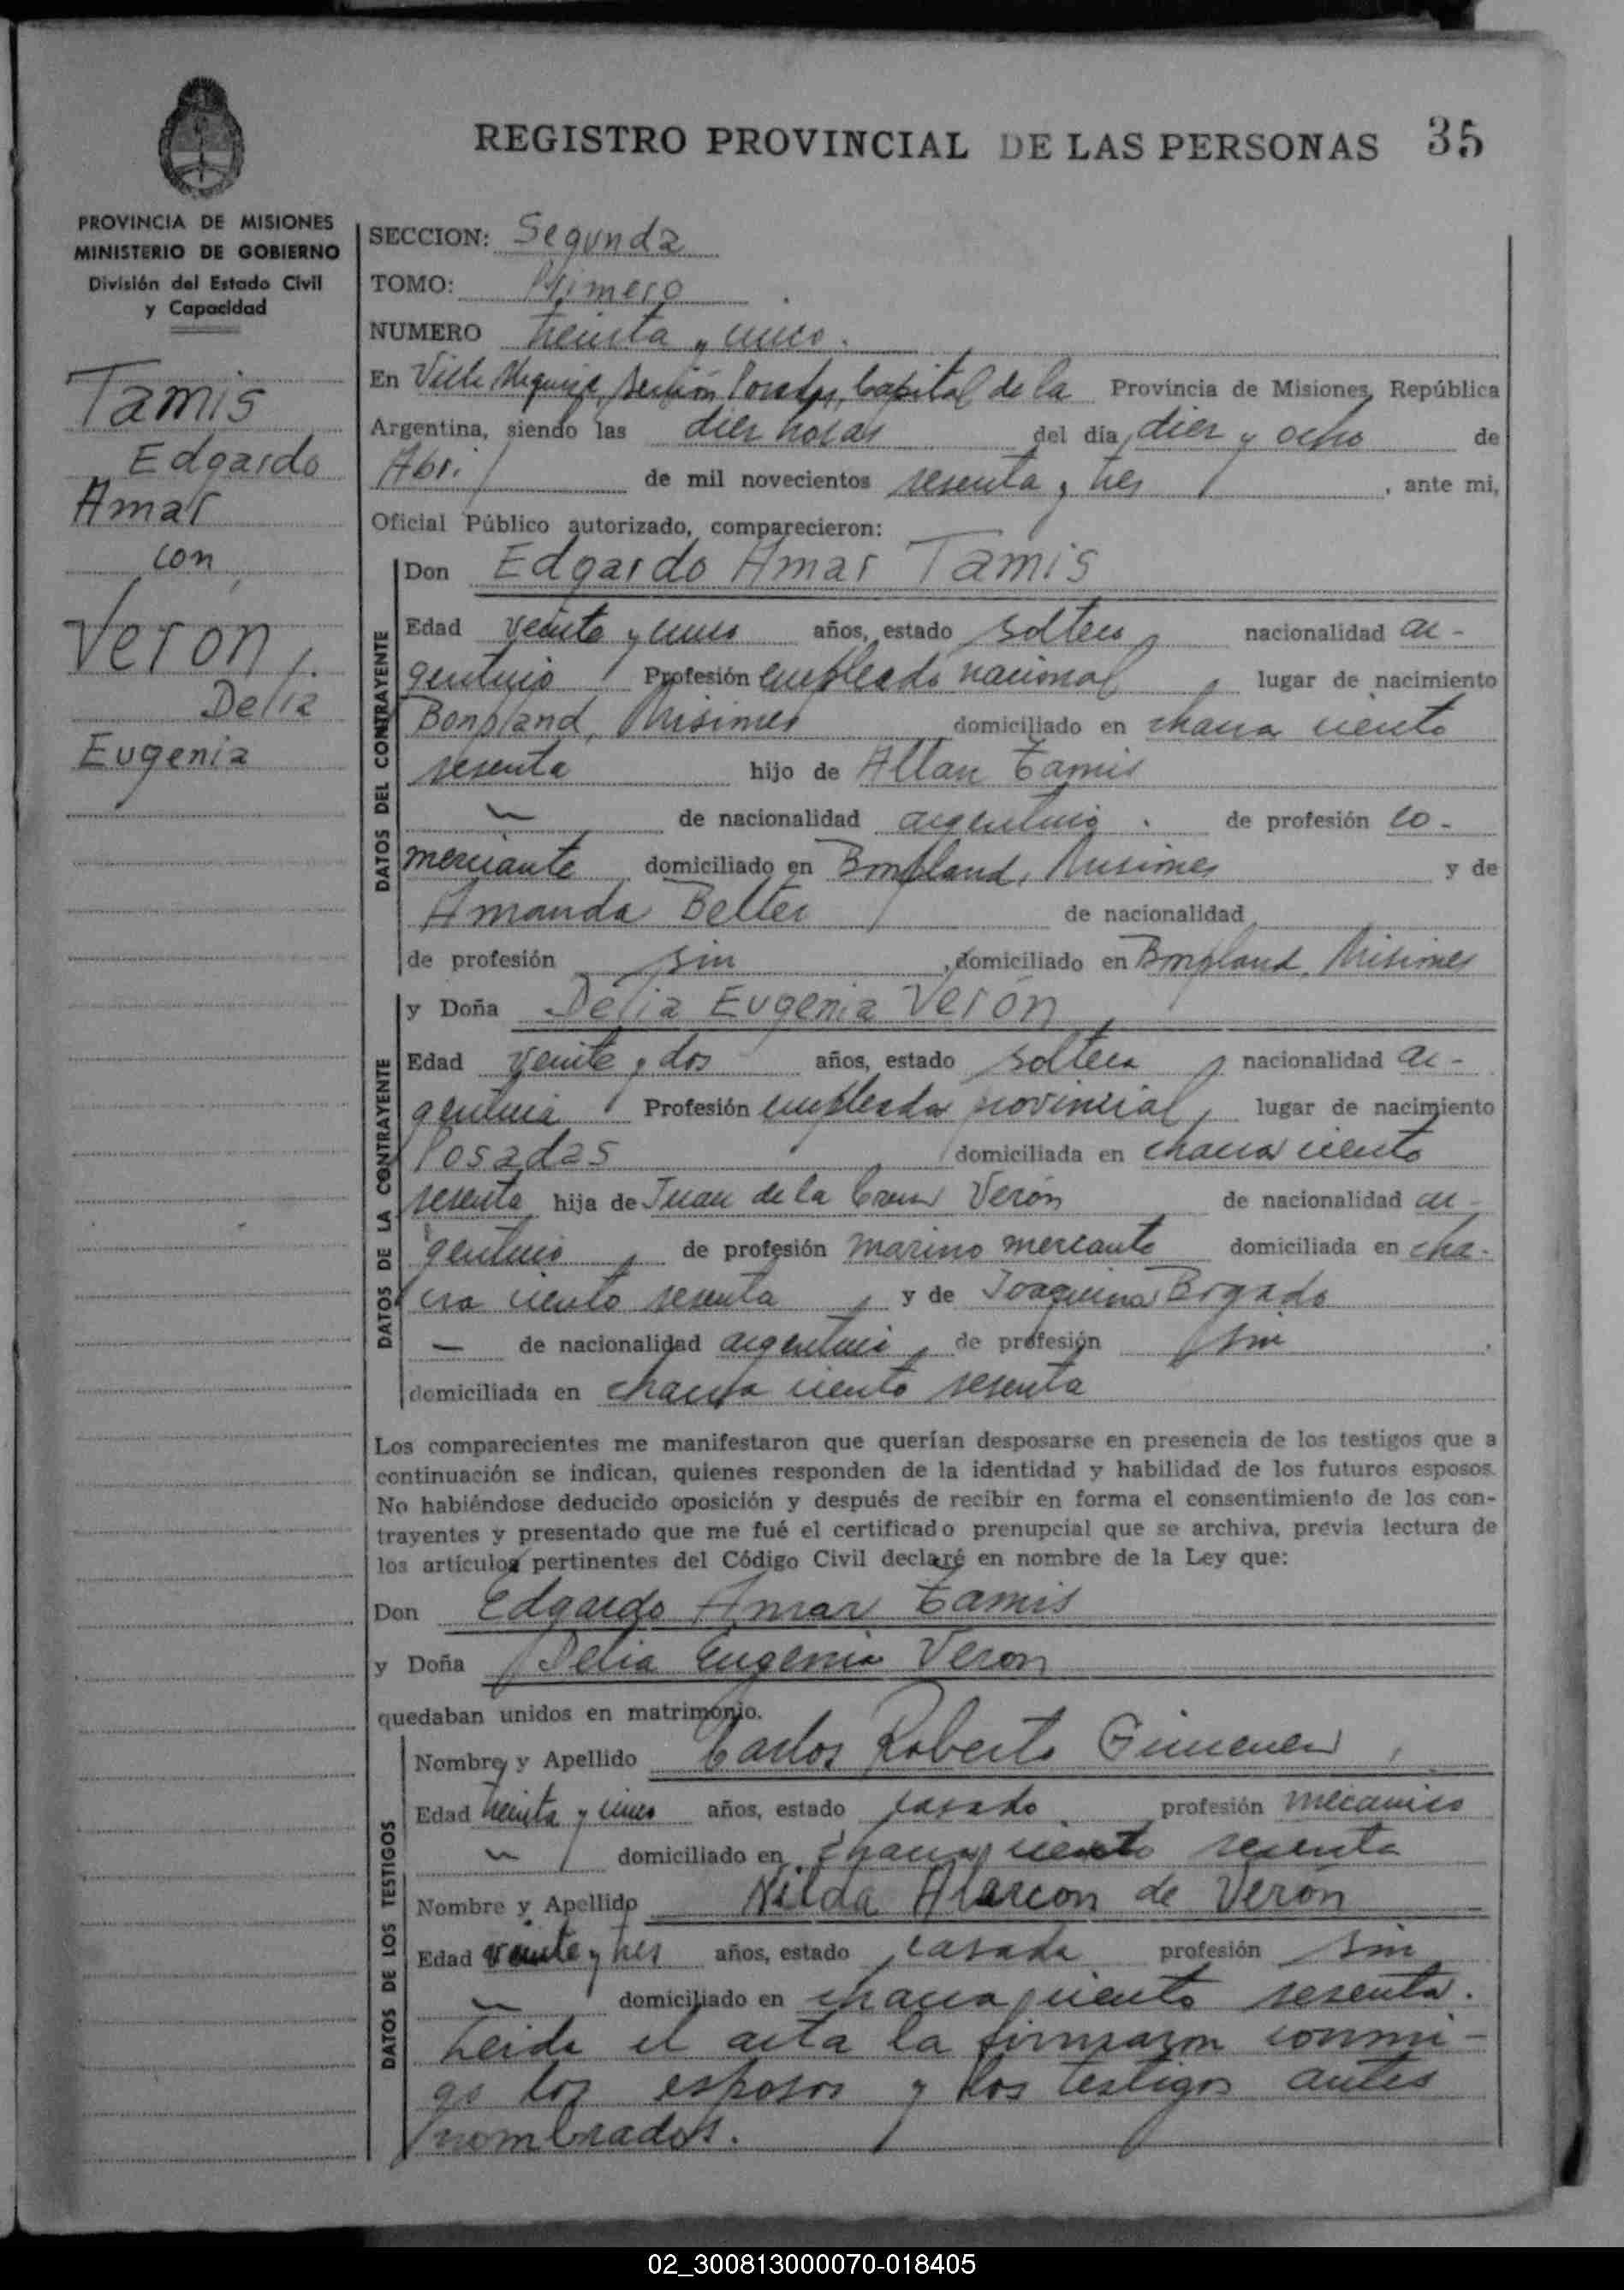 REGISTRO PROVINCIAL DE LAS PERSONAS 35
PROVINCIA DE MISIONES
MINISTERIO DE GOBIERNO
División del Estado Civil
y Capacidad
Tamis
Edgardo
Amar
con
Verón,
Delia
Eugenia
SECCION: Segunda
TOMO: Primero
NUMERO treinta y cinco.
En Villa Urquiza, sección Posadas, Capital de la Provincia de Misiones, República
Argentina, siendo las diez horas del día diez y ocho de
Abril de mil novecientos sesenta y tres, ante mi,
Oficial Público autorizado, comparecieron:
DATOS DEL CONTRAYENTE
Don Edgardo Amar Tamis
Edad veinte y cinco años, estado soltero, nacionalidad ar-
gentino Profesión empleado nacional, lugar de nacimiento
Bonpland, Misiones domiciliado en chacra ciento
sesenta hijo de Allan Tamis
de nacionalidad argentino. de profesión co-
merciante domiciliado en Bonpland, Misiones y de
Amanda Better de nacionalidad
de profesión sin, domiciliado en Bonpland, Misiones
DATOS DE LA CONTRAYENTE
y Doña Delia Eugenia Verón
Edad veinte y dos años, estado soltera, nacionalidad ar-
gentina Profesión empleada provincial, lugar de nacimiento
Posadas domiciliada en chacra ciento
sesenta hija de Juan de la Cruz Verón de nacionalidad ar-
gentino, de profesión marino mercante domiciliada en cha-
cra ciento sesenta, y de Joaquina Bogado
— de nacionalidad argentina, de profesión sin.
domiciliada en chacra ciento sesenta
Los comparecientes me manifestaron que querían desposarse en presencia de los testigos que a
continuación se indican, quienes responden de la identidad y habilidad de los futuros esposos.
No habiéndose deducido oposición y después de recibir en forma el consentimiento de los con-
trayentes y presentado que me fué el certificado prenupcial que se archiva, previa lectura de
los artículos pertinentes del Código Civil declaré en nombre de la Ley que:
Don Edgardo Amar Tamis
y Doña Delia Eugenia Veron
quedaban unidos en matrimonio.
DATOS DE LOS TESTIGOS
Nombre y Apellido Carlos Roberto Gimenez,
Edad treinta y cinco años, estado casado profesión mecanico
domiciliado en chacra ciento sesenta
Nombre y Apellido Nilda Alarcon de Verón
Edad veinte y tres años, estado casada profesión sin
domiciliado en chacra ciento sesenta.
Leida el acta la firmaron conmi-
go los esposos y los testigos antes
nombrados.
02_300813000070-018405